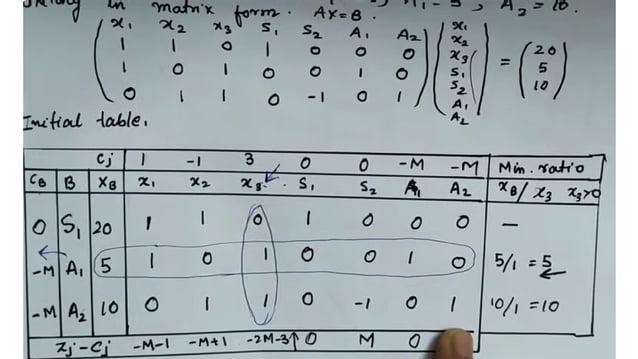 in matrix form. AX=B. A₂ = 10.
x₁ x₂ x₃ S₁ S₂ A₁ A₂
1 1 0 1 0 0 0 x₁
1 0 1 0 0 1 0 x₂ = 20
0 1 1 0 -1 0 1 x₃ 5
S₁ 10
S₂
A₁
A₂
Initial table.
Cj 1 -1 3 0 0 -M -M Min. ratio
CB B XB x₁ x₂ x₃ S₁ S₂ A₁ A₂ XB/x₃ x₃>0
0 S₁ 20 1 1 0 1 0 0 0 —
-M A₁ 5 1 0 1 0 0 1 0 5/1 = 5
-M A₂ 10 0 1 1 0 -1 0 1 10/1 = 10
Zj-Cj -M-1 -M+1 -2M-3↑ 0 M 0